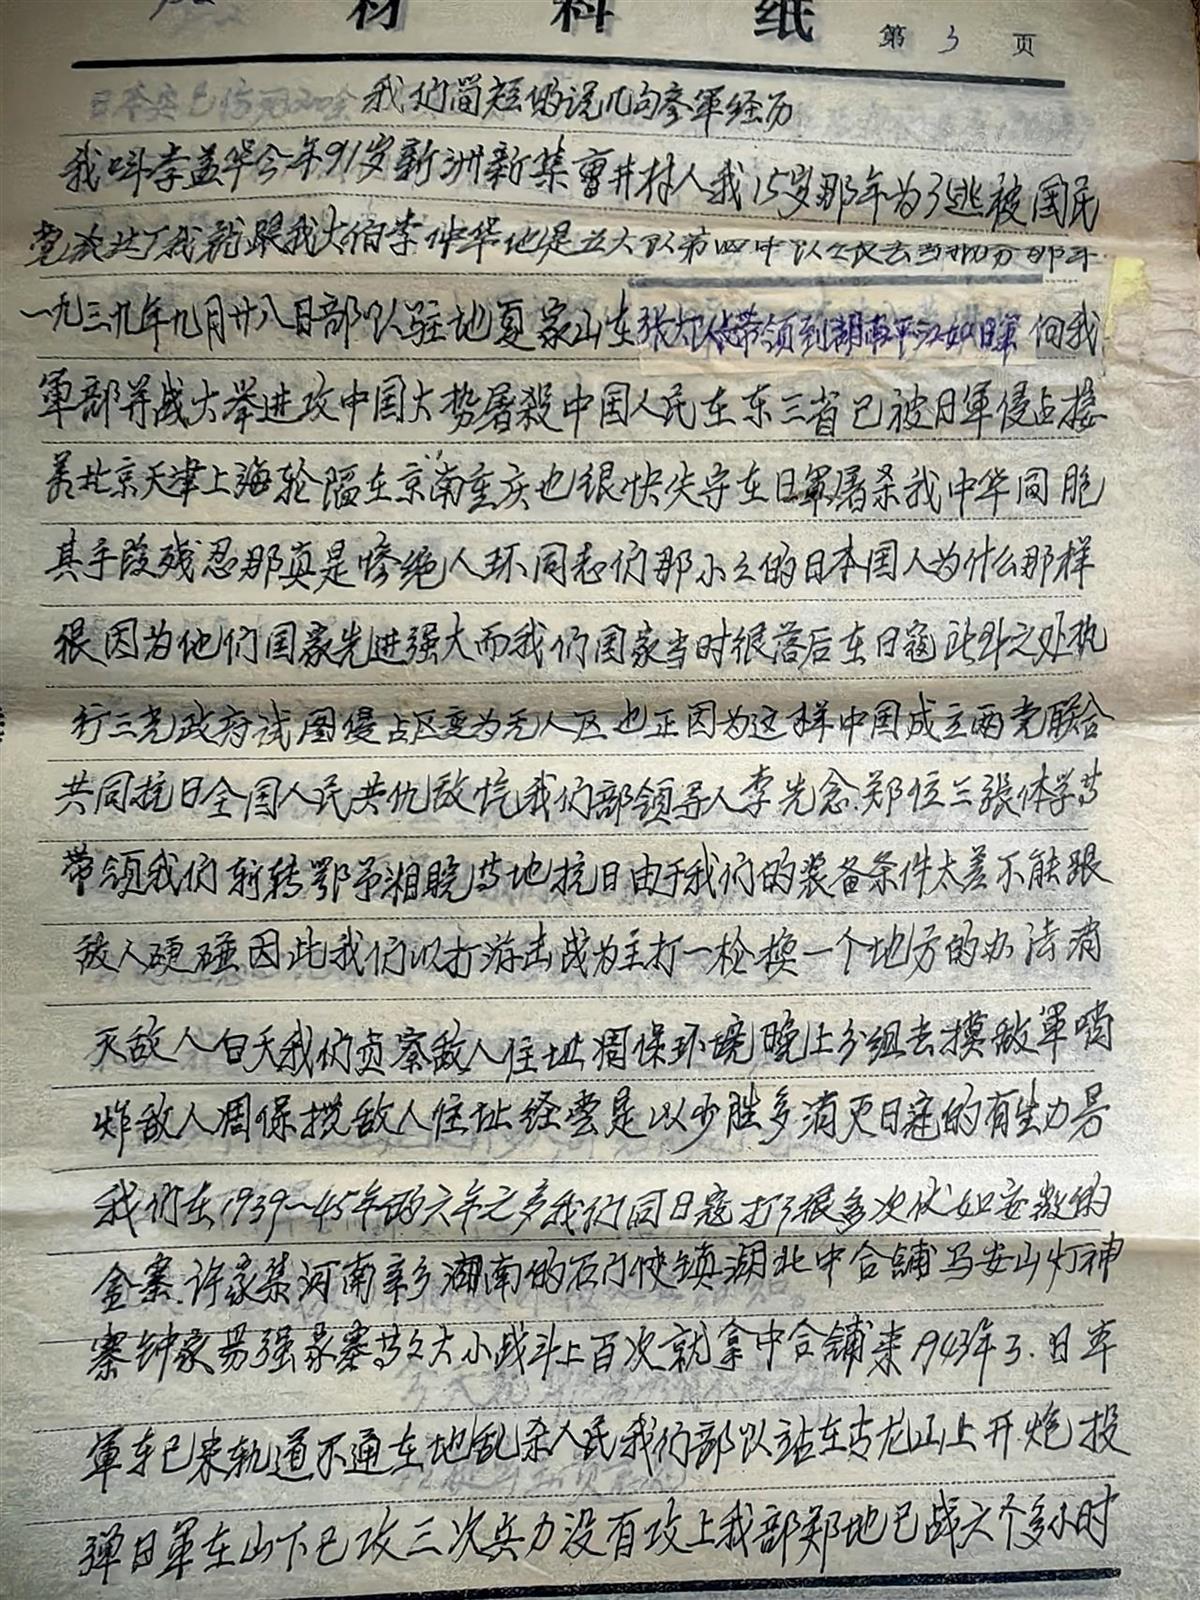 材料纸 第3页
我们简短的说几句参军经历
我叫李益华今年91岁新洲新集曹井村人我15岁那年为了逃被国民
党我就跟我大伯李仲华他是五大队第四中队
一九三九年九月廿八日部队驻地夏家山东张大队长带领到湖南平江如日军向我
军部并战大举进攻中国大势屠殺中国人民在东三省已被日军侵占接
着北京天津上海轮陥在京南重庆也很快失守在日軍屠杀我中华同胞
其手段残忍那真是惨绝人环同志们那小小的日本国人为什么那样
很因为他们国家先进强大而我们国家当时很落后在日寇此外之处执
行三光政府试图侵占区变为无人区也正因为这样中国成立两党联合
共同抗日全国人民共仇敌忾我们部领导人李先念.郑位三張体学等
带领我们转鄂予湘皖等地抗日由于我们的装备条件太差不能跟
敌人硬碰因此我们以打游击战为主打一枪换一个地方的办法消
灭敌人白天我们贞察敌人住址凋保环境晚上分组去摸敌軍哨
炸敌人凋保搅敌人住址经尝是以少胜多消灭日寇的有生力另
我们在1939～45年的六年之多我们同日寇打了很多次仗如安徽的
金寨.许家集河南新乡湖南的石门侠镇湖北中合铺马安山灯神
寨钟家昜强家寨等大小战斗上百次就拿中合铺来1943年3.日车
軍车已来轨道不通在地乱杀人民我们部队站在古龙山上开炮投
弹日軍在山下已攻三次兵力没有攻上我部郑地已战六个多小时